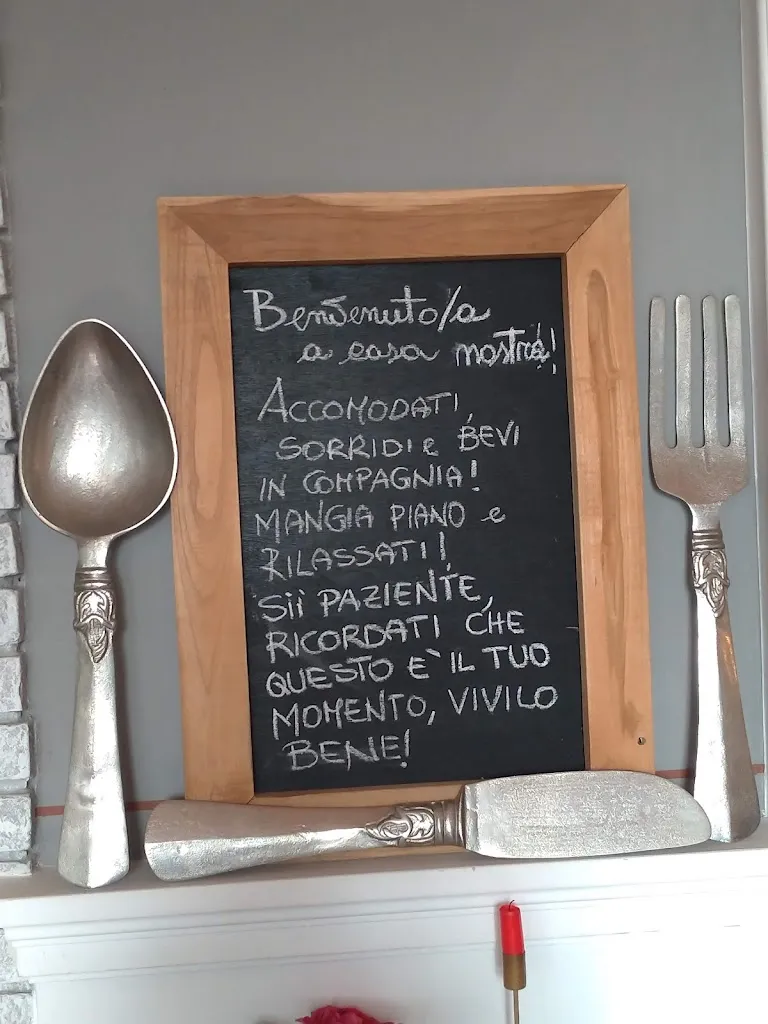 Benvenuto/a
a casa nostra!
ACCOMODATI,
SORRIDI e BEVI
IN COMPAGNIA!
MANGIA PIANO e
RILASSATI!
Sii PAZIENTE,
RICORDATI CHE
QUESTO E` IL TUO
MOMENTO, VIVILO
BENE!